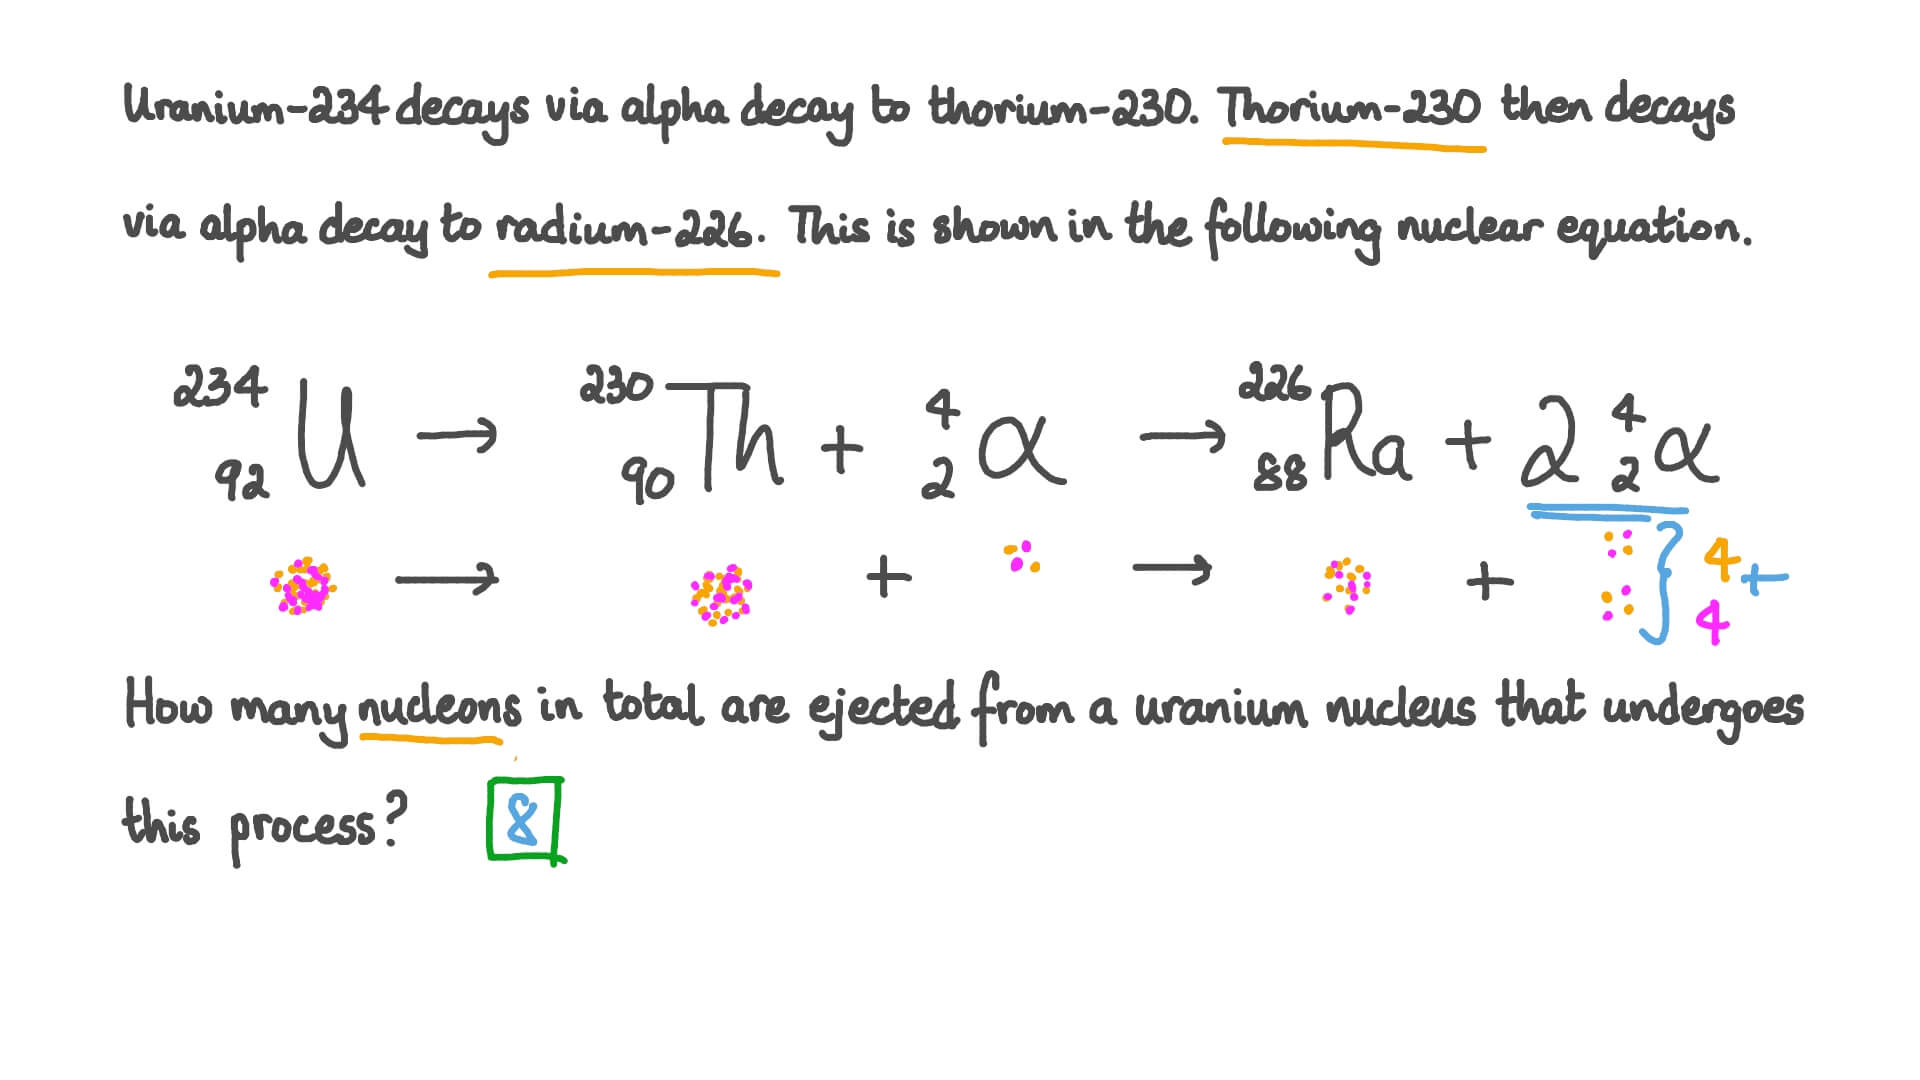 Uranium-234 decays via alpha decay to thorium-230. Thorium-230 then decays
via alpha decay to radium-226. This is shown in the following nuclear equation.
²³⁴₉₂U → ²³⁰₉₀Th + ⁴₂α → ²²⁶₈₈Ra + 2 ⁴₂α
→ + → + } 4 +
4
How many nucleons in total are ejected from a uranium nucleus that undergoes
this process? 8